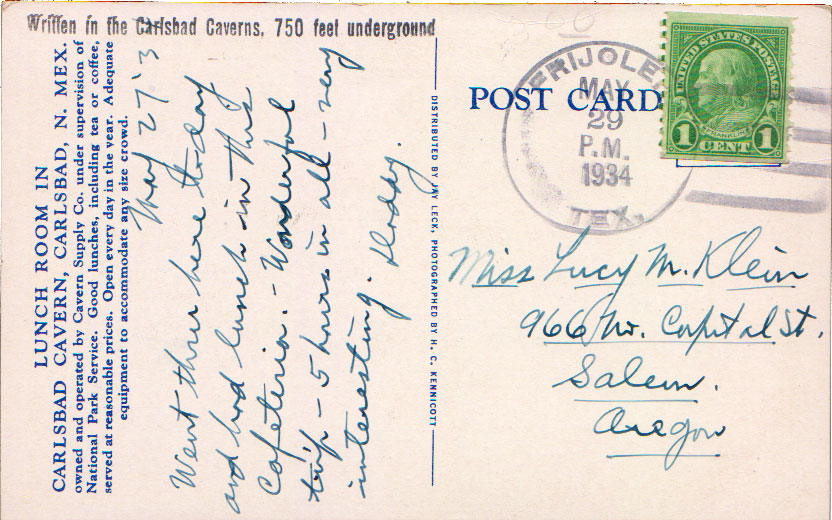 Written in the Carlsbad Caverns, 750 feet underground
LUNCH ROOM IN
CARLSBAD CAVERN, CARLSBAD, N. MEX.
owned and operated by Cavern Supply Co. under supervision of
National Park Service. Good lunches, including tea or coffee,
served at reasonable prices. Open every day in the year. Adequate
equipment to accommodate any size crowd.
May 27 '3
Went thru here today
and had lunch in this
Cafeteria. - Wonderful
trip - 5 hours in all - very
interesting. Daddy.
DISTRIBUTED BY JAY LECK, PHOTOGRAPHED BY H. C. KENNICOTT
POST CARD
FRIJOLE
MAY
29
P.M.
1934
TEX.
UNITED STATES POSTAGE
FRANKLIN
1 CENT 1
Miss Lucy M. Klein
966 No. Capital St.
Salem.
Oregon